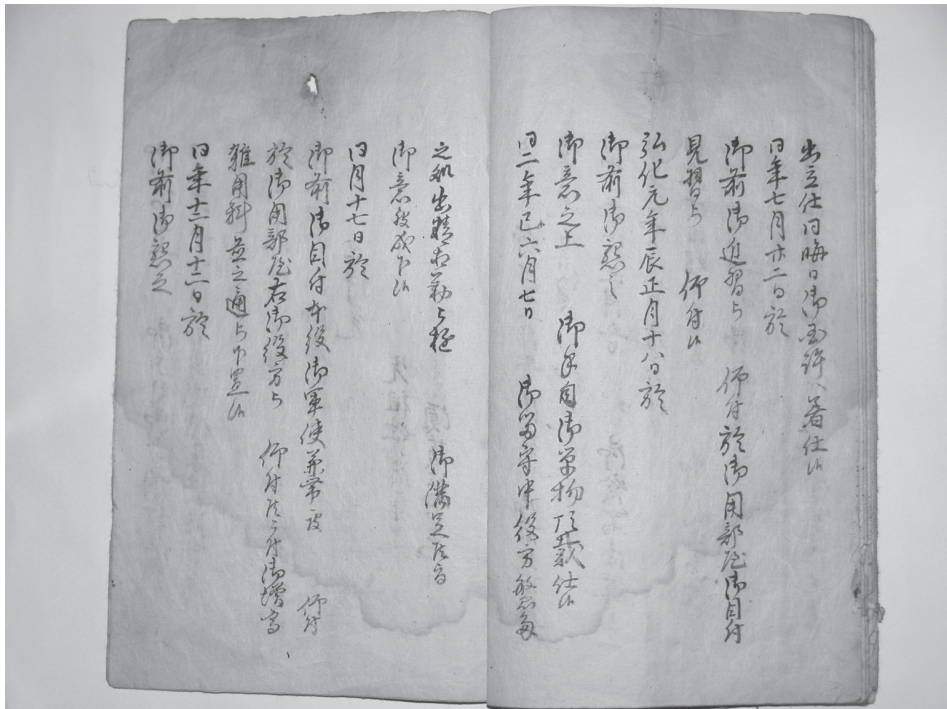 出立仕同晦日御国許へ着仕候
同年七月廿二日於
御前御近習与 仰付於御用部屋御目付
見習与 仰付候
弘化元年辰正月十八日於
御前御懇之
御意之上 御手自御菓物頂戴仕候
同二年巳六月七日 御留守中役方繁多
之処出精相勤与極 御満足段旨
御意被成下候
同月十七日於
御前御目付本役御軍使兼帯被 仰付
於御用部屋右御役方与 仰付候ニ付御増高
雑用料並之通与下置候
同年十二月十二日於
御前御懇之